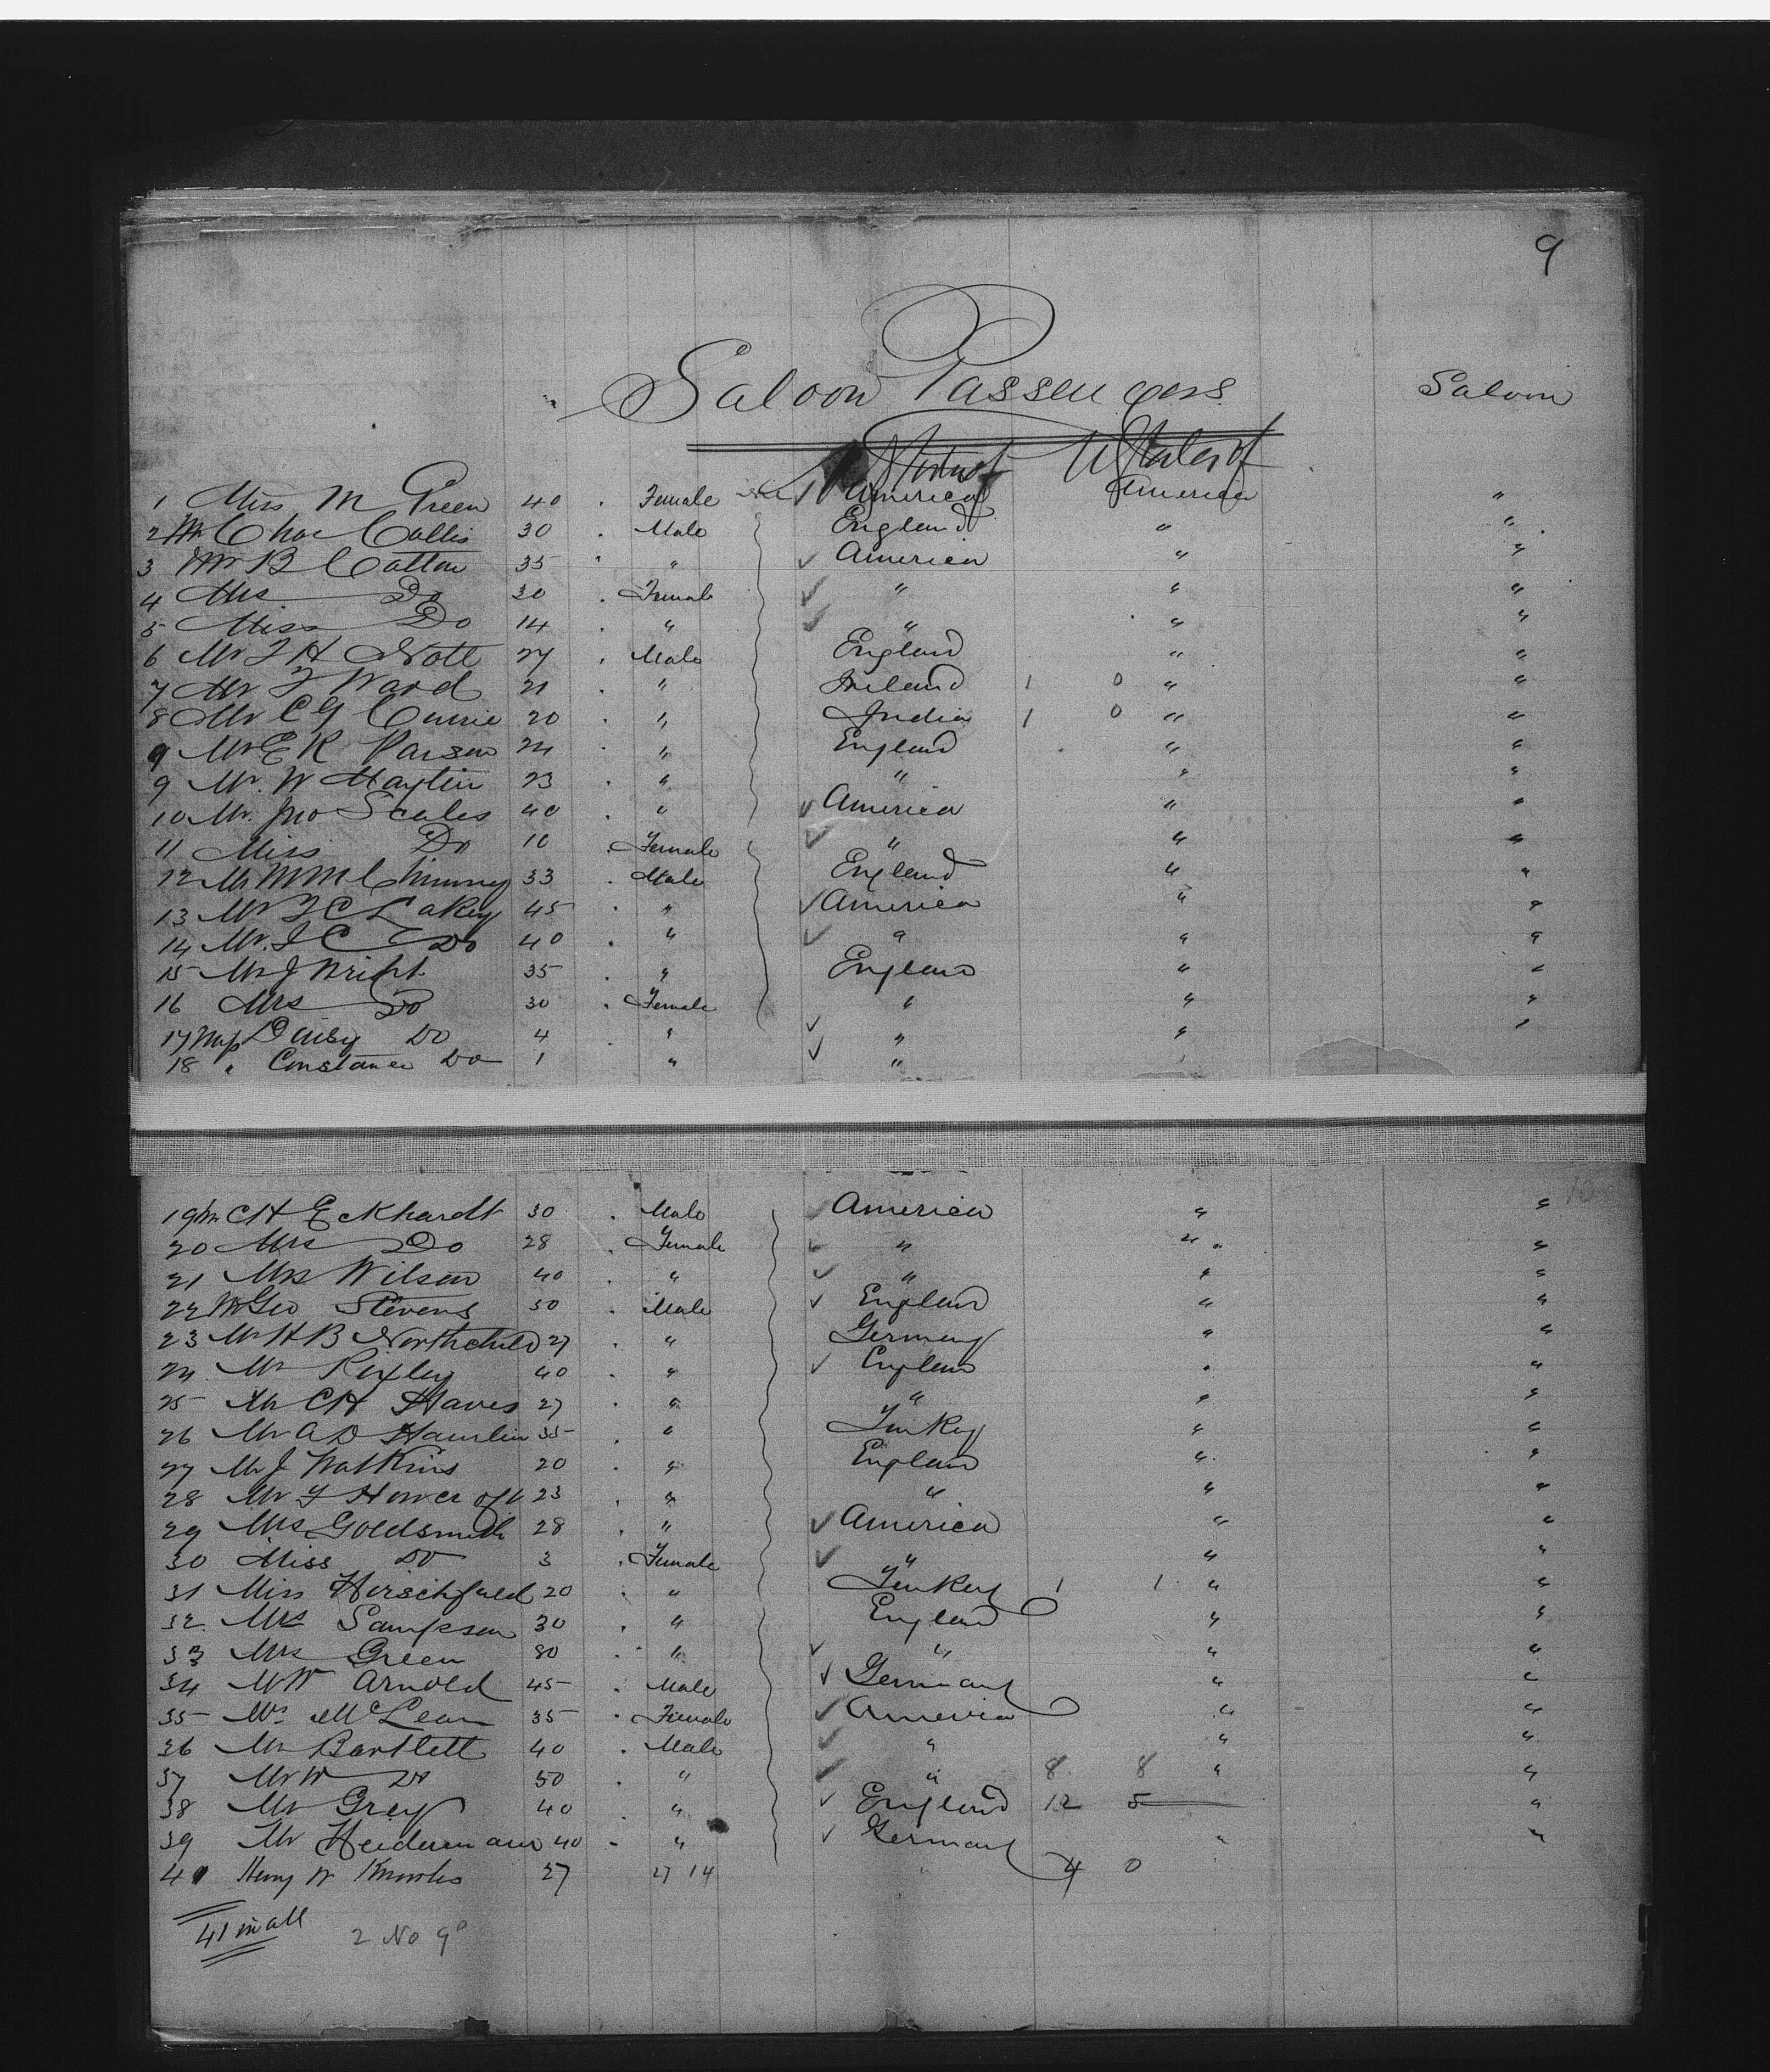 9
Saloon Passengers Saloon
U States of
1 Miss M Green 40 . Female America America "
2 Mr Chas Collis 30 . Male England " "
3 Mr B Cotton 35 " " ✓ America " "
4 Mrs Do 30 . Female ✓ " " "
5 Miss Do 14 . " ✓ " " "
6 Mr F H Nott 27 . Male England " "
7 Mr F Ward 21 . " Ireland 1 0 " "
8 Mr C G Currie 20 . " India 1 0 " "
9 Mr E R Parson 24 . " England " "
9 Mr. W Haylin 23 . " " " "
10 Mr. Jno Scales 40 . " ✓ America " "
11 Miss Do 10 . Female ✓ " " "
12 Mr W M Chinney 33 . Male England " "
13 Mr F C Lakey 45 . " ✓ America " "
14 Mr. J C Do 40 . " ✓ " " "
15 Mr J Wright 35 . " England " "
16 Mrs Do 30 . Female " " "
17 Daisy Do 4 . " ✓ " " "
18 " Constance Do 1 " ✓ "
19 Mr C H Eckhardt 30 . Male ✓ America " "
20 Mrs Do 28 . Female ✓ " " "
21 Mrs Wilson 40 . " ✓ " " "
22 Mr Geo Stevens 50 . Male ✓ England " "
23 Mr H B Northchild 27 . " Germany " "
24 Mr Rixley 40 . " ✓ England " "
25 Mr C H Haves 27 . " " " "
26 Mr A D Hamlin 35 . " Turkey " "
27 Mr J Watkins 20 . " England " "
28 Mr F 23 . " " " "
29 Mrs Goldsmith 28 . " ✓ America " "
30 Miss Do 3 . Female ✓ " " "
31 Miss Hirschfield 20 . " Turkey 1 1 " "
32 Mrs Sampson 30 . " England " "
33 Mrs Green 80 . " ✓ " " "
34 Mr W Arnold 45 . Male ✓ Germany " "
35 Mrs McLean 35 . Female ✓ America " "
36 Mr Bartlett 40 . Male ✓ " " "
37 Mr W Do 50 . " ✓ " 8 8 " "
38 Mr Grey 40 . " ✓ England 12 5 "
39 Mr Heidermann 40 . " ✓ Germany " "
40 Henry W Knowles 27 27 14 " 4 0
41 in all 2 No 9